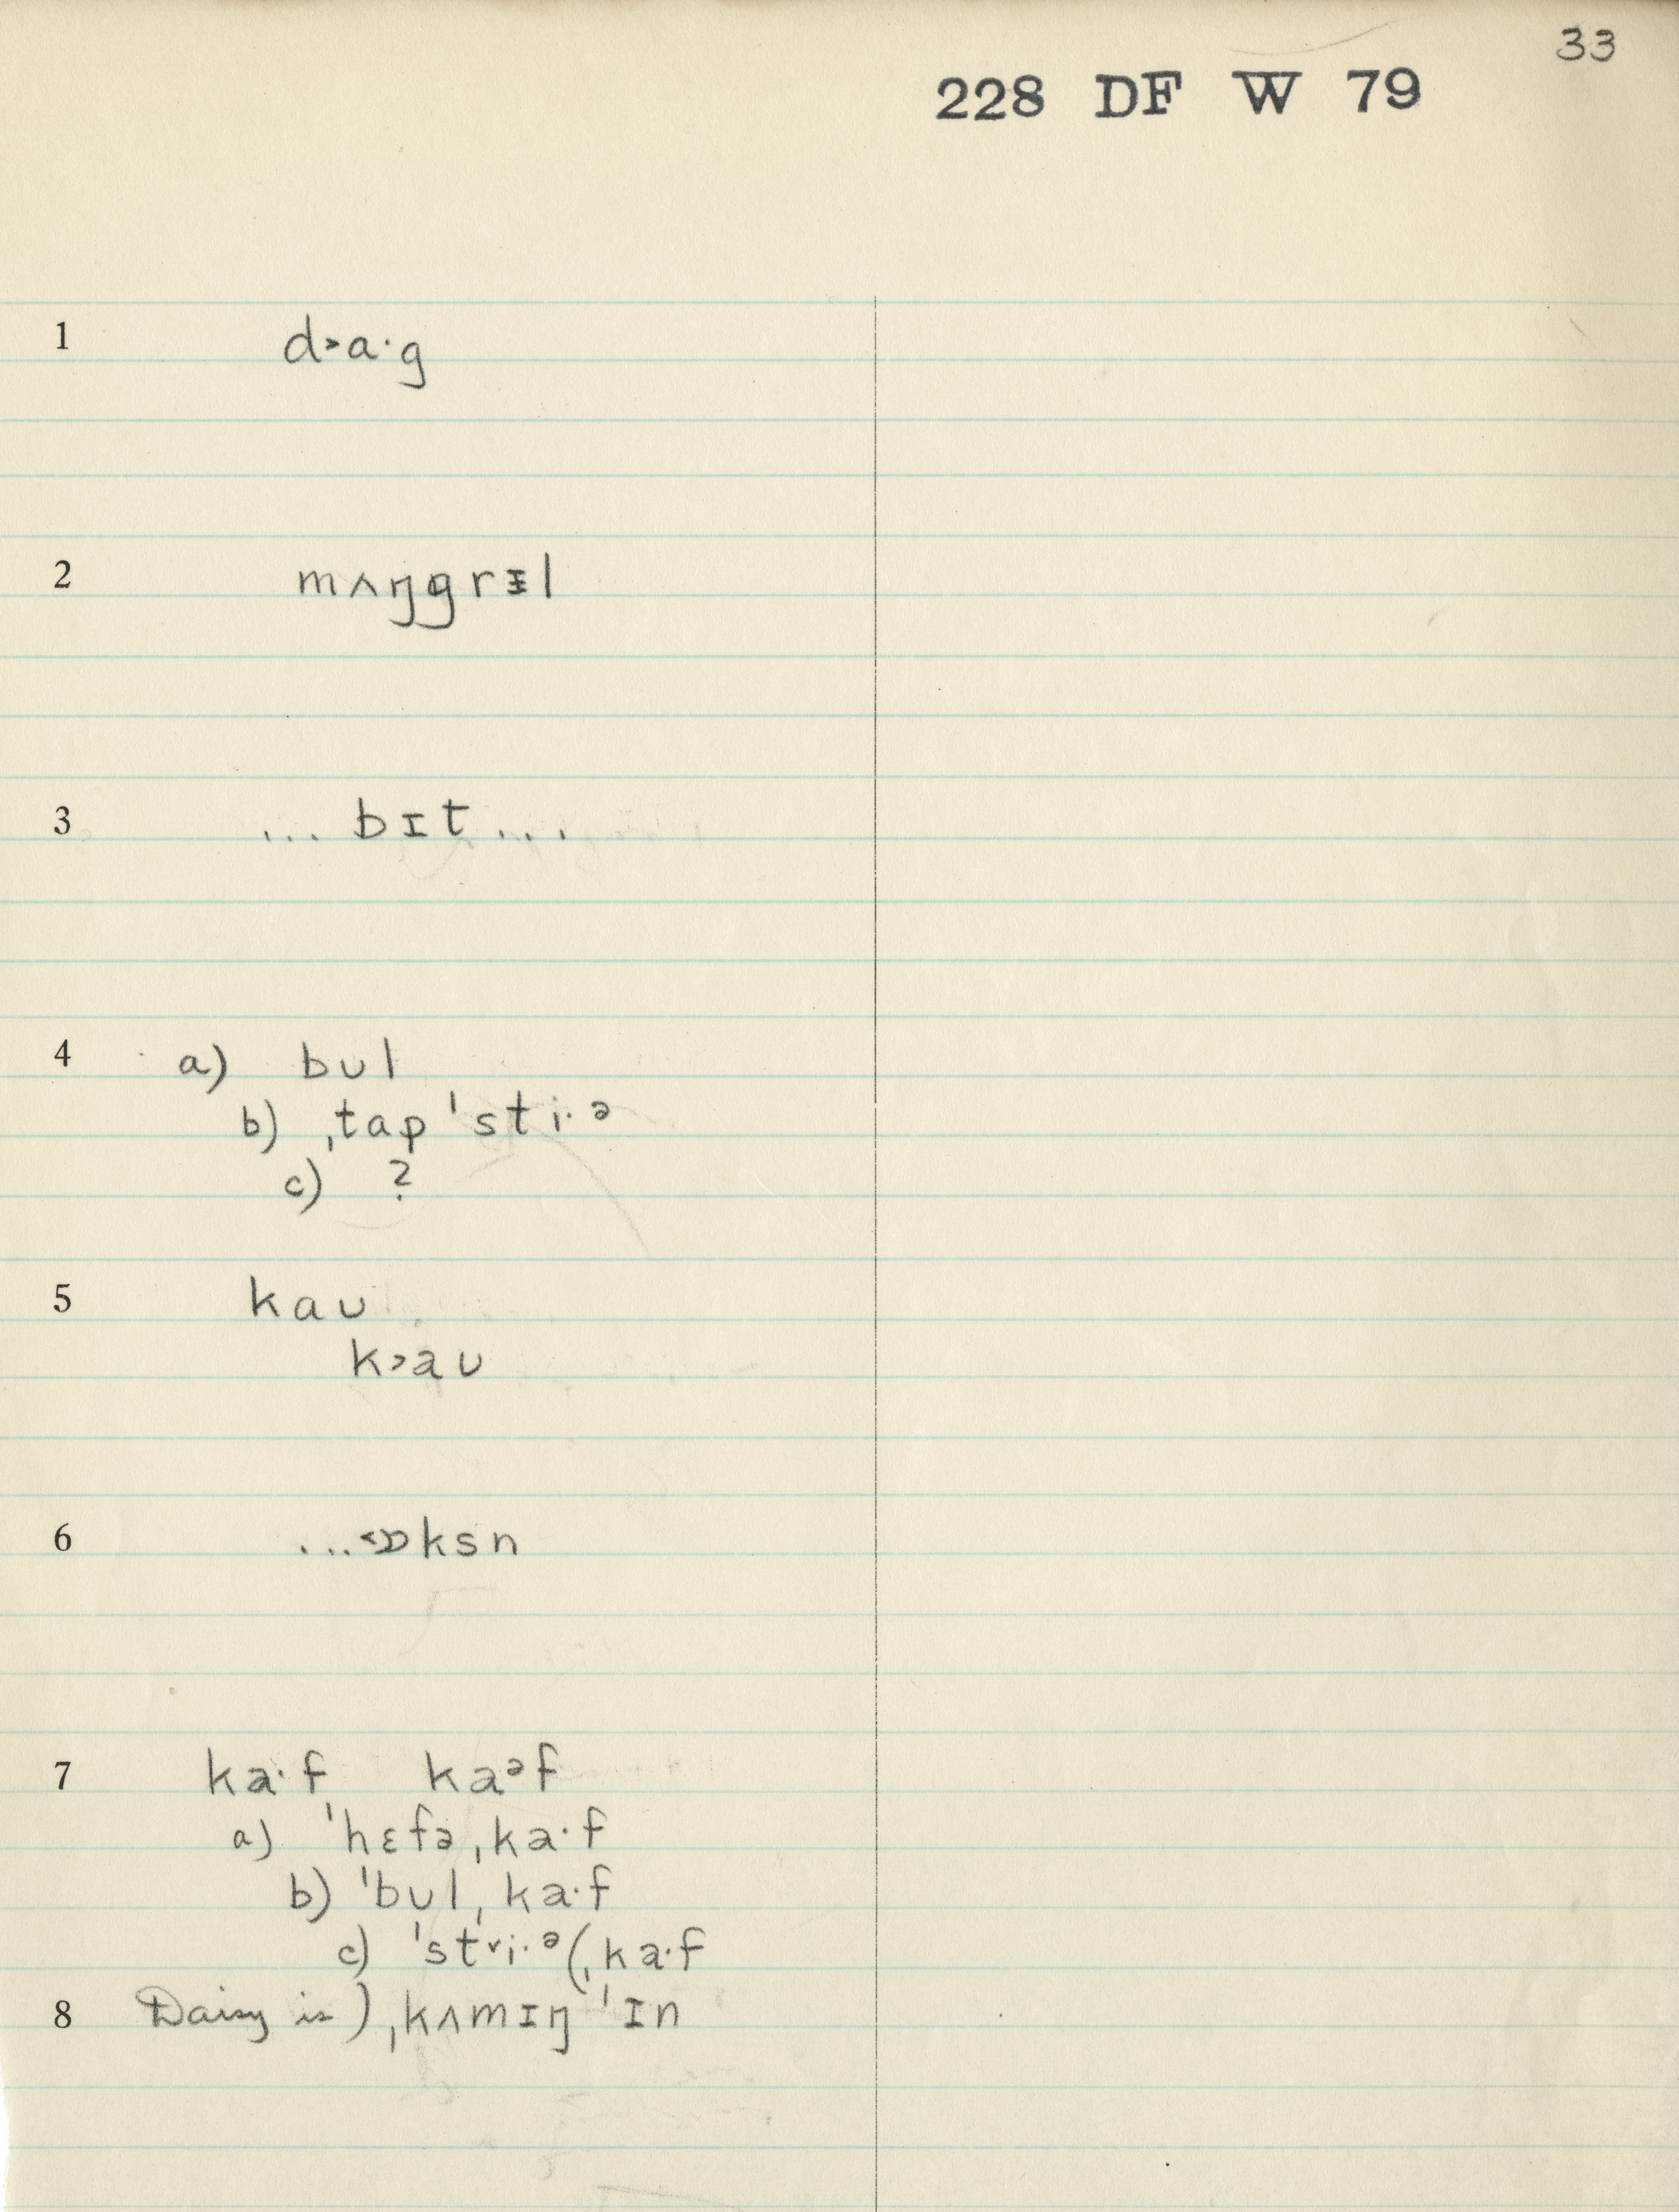 33
228 DF W 79
1 d˃a·g
2 mʌŋgrɪ̵l
3 ... bɪt ...
4 a) bʊl
b) ˌtap ˈsti·ᵊ
c) ?
5 kaʊ
k˃aʊ
6 ...˂ɒksn
7 ka·f kaᵊf
a) ˈhɛfəˌka·f
b) ˈbʊlˌka·f
c) ˈstri·ᵊ(ˌka·f
8 Daisy is) ˌkʌmɪŋ ˈɪn